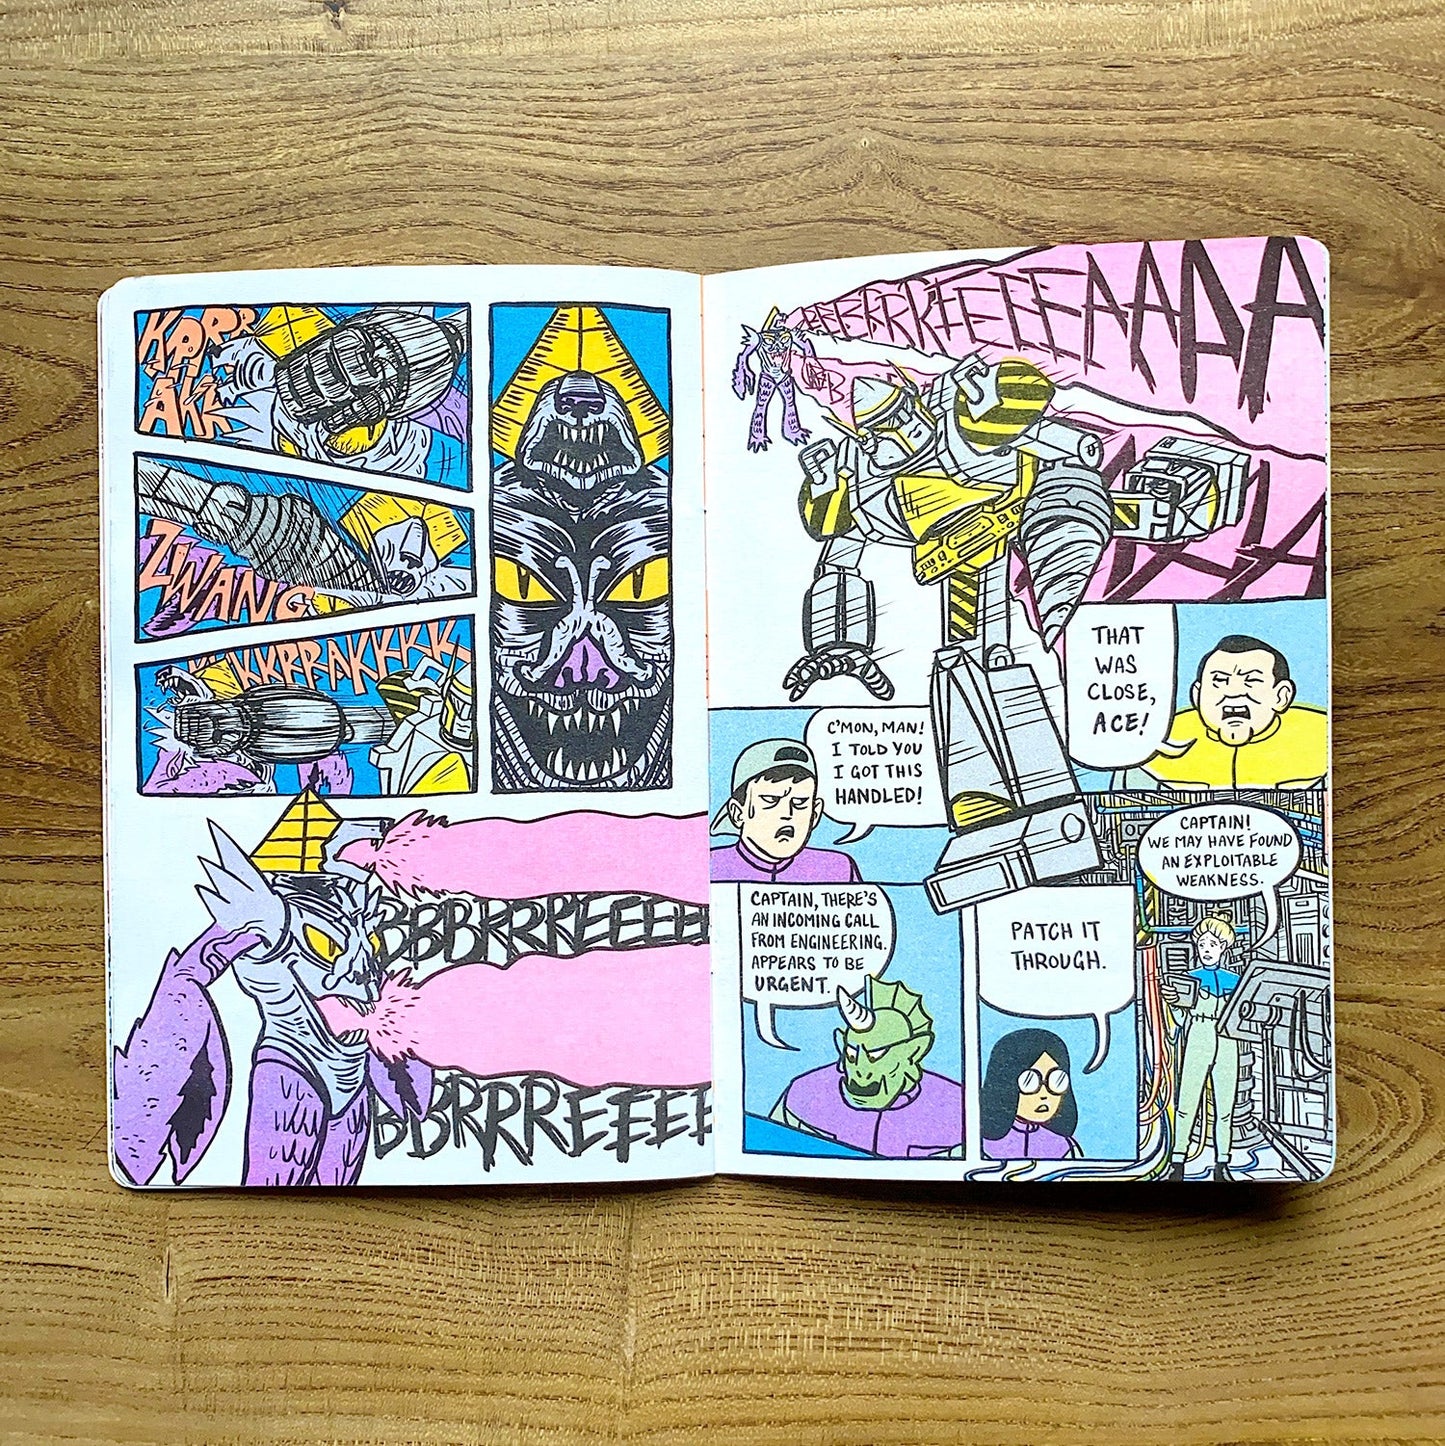 ZWANG
KKRRAKKKK
BBBRRREEEEE
BBRRREEEEE
THAT
WAS
CLOSE,
ACE!
C'MON, MAN!
I TOLD YOU
I GOT THIS
HANDLED!
CAPTAIN, THERE'S
AN INCOMING CALL
FROM ENGINEERING.
APPEARS TO BE
URGENT.
PATCH IT
THROUGH.
CAPTAIN!
WE MAY HAVE FOUND
AN EXPLOITABLE
WEAKNESS.